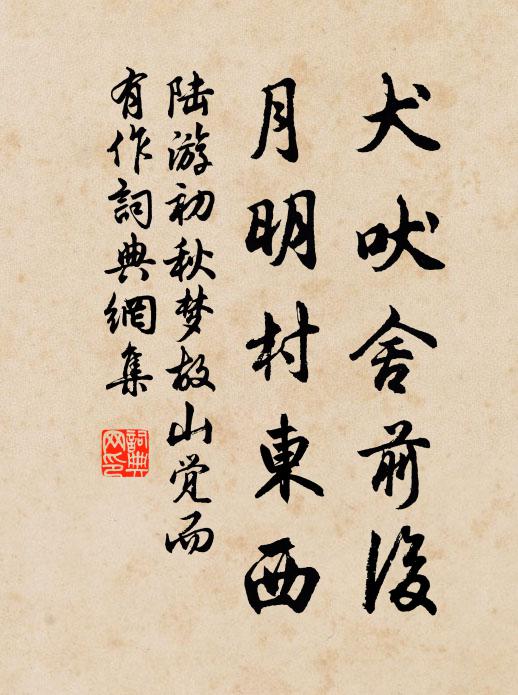 犬吠舍前後
月明村東西
陆游初秋梦故山觉而
有作詞典網集
詞典網印